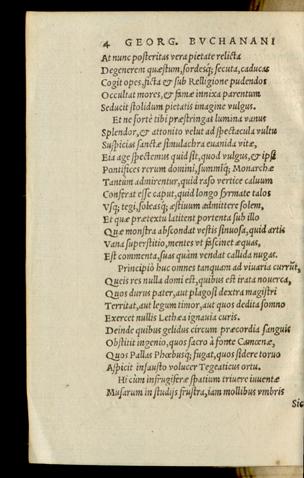 4 GEORG. BVCHANANI
At nunc posteritas vera pietate relicta
Degenerem quæstum, sordesq; secuta, caducas
Cogit opes, ficta & sub Relligione pudendos
Occultat mores, & famæ innixa parentum
Seducit stolidum pietatis imagine vulgus.
Et ne fortè tibi præstringat lumina vanus
Splendor, & attonito velut ad spectacula vultu
Suspicias sanctæ stimulachra euanida vitæ,
Eia age spectemus quid sit, quod vulgus, & ipsi
Pontifices rerum domini, summiq; Monarchæ
Tantùm admirentur, quid raso vertice caluum
Conferat esse caput, quid longo syrmate talos
Vsq; tegi, soleasq; æstiuum admittere solem,
Et quæ prætextu latitent portenta sub illo
Quæ monstra abscondat vestis sinuosa, quid artis
Vana superstitio, mentes vt fascinet æquas,
Est commenta, suas quàm vendat callida nugas.
Principiò huc omnes tanquam ad viuaria currũt,
Queis res nulla domi est, quibus est irata nouerca,
Quos durus pater, aut plagosi dextra magistri
Territat, aut legum timor, aut quos dedita somno
Exercet nullis Lethæa ignauia curis.
Deinde quibus gelidus circum præcordia sanguis
Obstitit ingenio, quos sacro à fonte Camœnæ,
Quos Pallas Phœbusq; fugat, quos sidere toruo
Aspicit infausto volucer Tegeaticus ortu.
Hi cùm infrugiferæ spatium triuere iuuentæ
Musarum in studijs frustra, iam mollibus vmbris
Sic